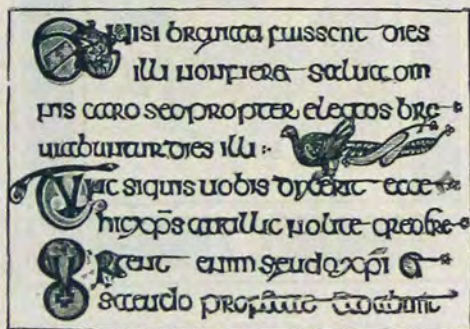 Et nisi breuiati fuissent dies
illi non fieret salua om
nis caro sed propter electos bre
uiabuntur dies illi :-
Tunc siquis uobis dixerit ecce
hic xp̄s aut illic nolite credere
Surgent enim seudo xp̄i &
seudo profetae & dabunt